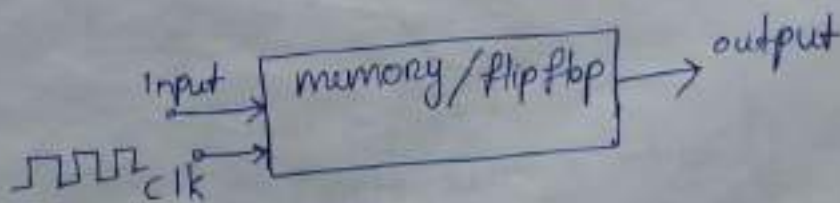 Input
memory/flipflop
output
Clk